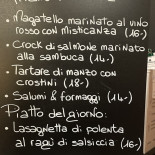 • Magatello marinato al vino
rosso con misticanza (16.-)
• Crock di salmone marinato
alla sambuca (14.-)
• Tartare di manzo con
crostini (18.-)
• Salumi & formaggi (14.-)
Piatto del giorno:
• Lasagnetta di polenta
al ragù di salsiccia (16.-)